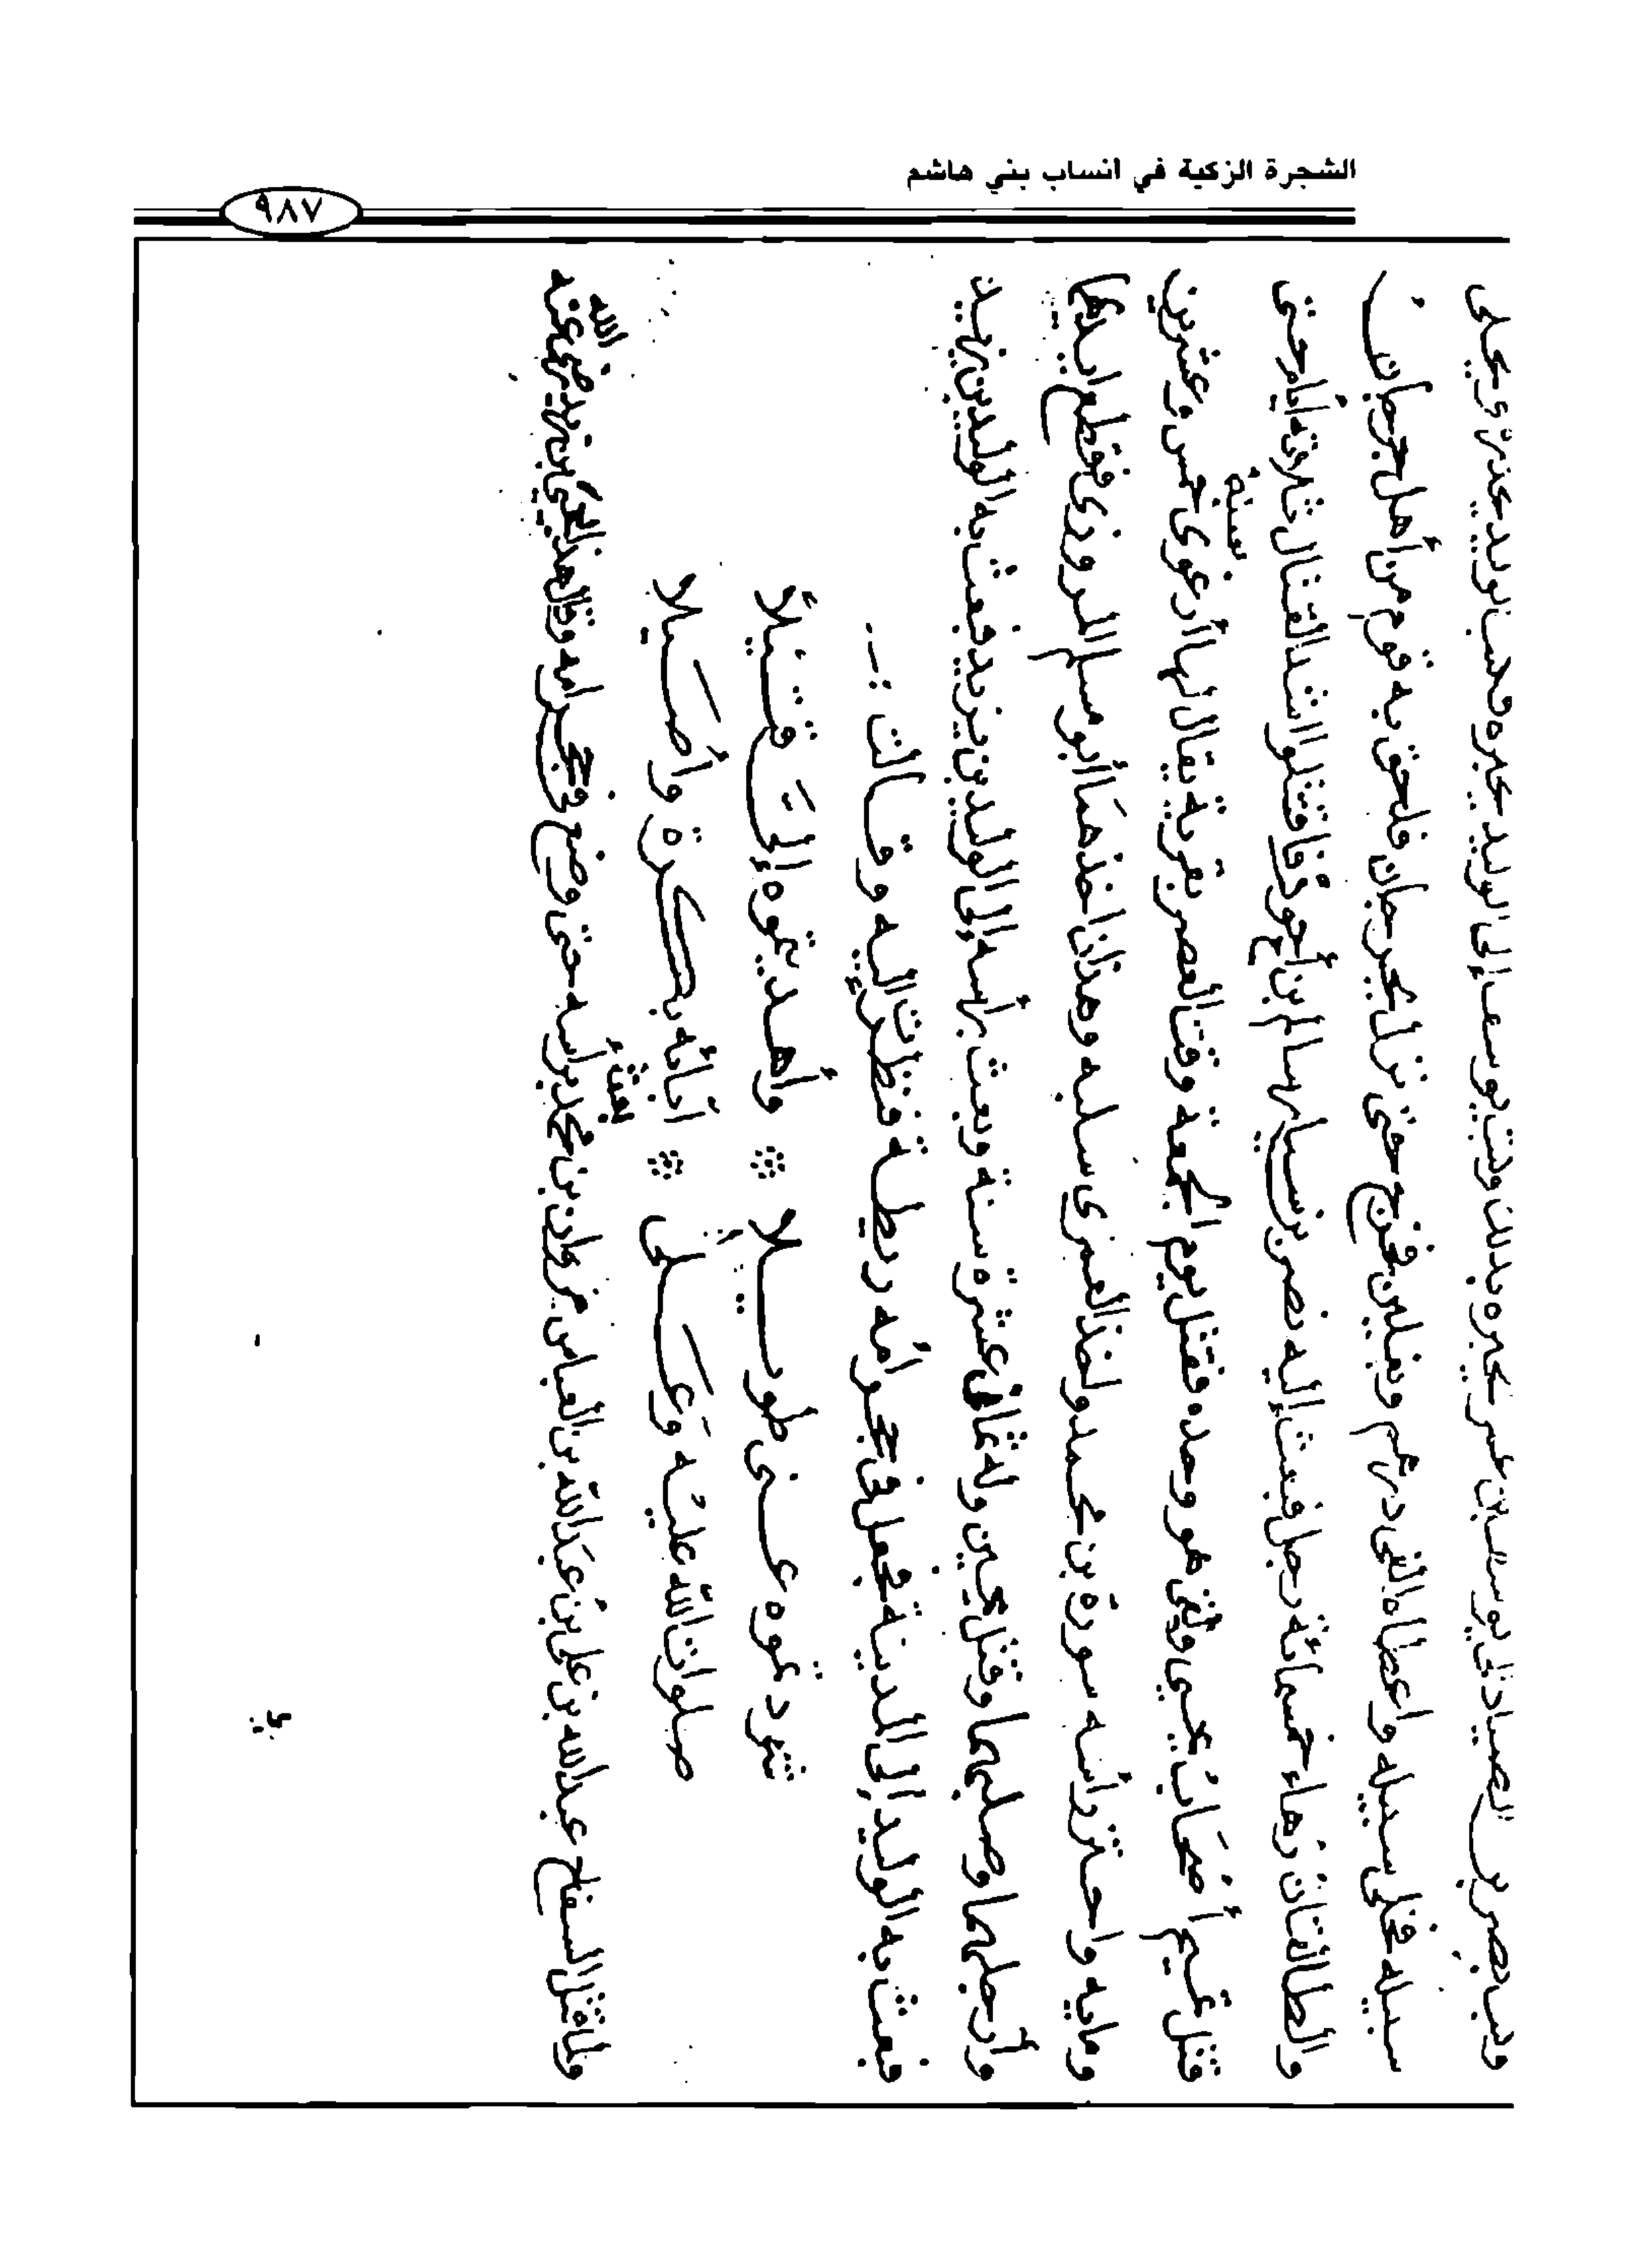 الشجرة الزكية في انساب بني هاشم
٩٨٧
وكتب نصر بن الصياد إلى يوسف بن عمر يخبره بذلك وكتب يوسف إلى الوليد يخبره فكتب الوليد يحذره ويخلى
سبيله فخلى سبيله وأعطاه الفى درهم وبغلين فخرج حتى نزل بجرجان فلحق به قوم من أهل جرجان
والطالقان زهاء خمسمائة رجل فبعث إليه نصر بن سيار سالم بن أحوذ فاقتتلوا اشد القتال ثلاثة أيام حتى
قتل جميع أصحاب يحيى وبقى هو وحده فقتل يوم الجمعة وقت العصر بقرية يقال لها أرغوى خمس وعشرين
سنة
ومايه واحتز رأسه سورة بن محمد واخذ العنزى سلبه وهذان اخذهما أبو مسلم المروزى فقطع ايديهما
وأرجلهما وصلبهما وقتل يحيى وله ثمانى عشرة سنة وبعث برأسه إلى الوليد بن يزيد فبعث به الوليد بن يزيد
فبعث به الوليد إلى المدينة فجعل فى حجر أمه ريطة فنظرت إليه وقالت :ـ
شرد تموه عـنى طويـلا ※ وأهـديتموه إلىَّ قـتيلاً
صلوات الله عليه وعـلى ※ آبائه بكـرة وأصـيلا
ولما قتل السفاح عبد الله بن على بن عبد الله بن العباس مروان بن محمد برأسه حتى وضع فى حجر امه وقال هذا بيحيى بن زيد رضى عنه
بعث
الله